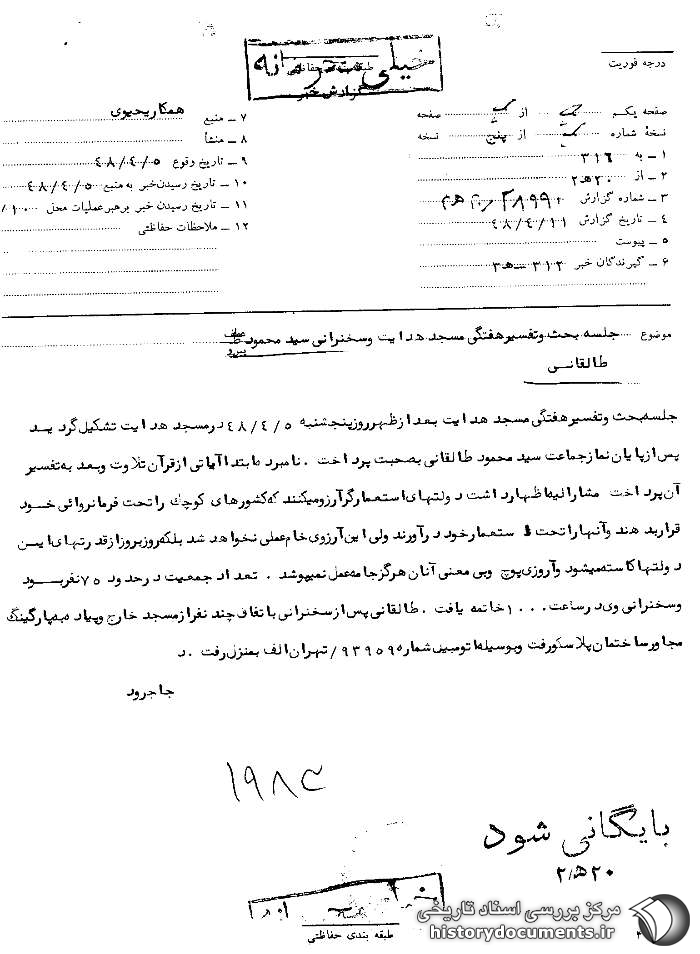 خیلی محرمانه
گزارش خبر
درجه فوریت
صفحه یکم از صفحه
نسخهٔ شماره از پنج نسخه
۱ – به ۳۱۶
۲ – از ۲۰هـ۲
۳ – شماره گزارش
۴ – تاریخ گزارش ۴۸/۴/۱۱
۵ – پیوست
۶ – گیرندگان خبر ۳۱۲ – هـ۳
۷ – منبع همکار یحیوی
۸ – منشأ
۹ – تاریخ وقوع ۴۸/۴/۵
۱۰ – تاریخ رسیدن خبر به منبع ۴۸/۴/۵
۱۱ – تاریخ رسیدن خبر برهبر عملیات محل
۱۲ – ملاحظات حفاظتی
موضوع جلسه بحث و تفسیر هفتگی مسجد هدایت وسخنرانی سید محمود
طالقانی
جلسه بحث و تفسیر هفتگی مسجد هدایت بعد از ظهر روز پنجشنبه ۴۸/۴/۵ در مسجد هدایت تشکیل گردید
پس از پایان نماز جماعت سید محمود طالقانی بصحبت پرداخت . نامبرده ابتدا آیاتی از قرآن تلاوت و بعد به تفسیر
آن پرداخت مشارالیه اظهار داشت دولتهای استعمارگر آرزو میکنند که کشورهای کوچک را تحت فرمانروائی خود
قرار بدهند و آنها را تحت استعمار خود در آورند ولی این آرزوی خام عملی نخواهد شد بلکه روز بروز از قدرتهای این
دولتها کاسته میشود و آرزوی پوچ وبی معنی آنان هرگز جامه عمل نمیپوشد . تعداد جمعیت در حدود ۷۵ نفر بود
وسخنرانی وی در ساعت ۱۰۰۰ خاتمه یافت . طالقانی پس از سخنرانی با تفاق چند نفر از مسجد خارج و پیاده به پارکینگ
مجاور ساختمان پلاسکو رفت و بوسیله اتومبیل شماره ۹۳۹۵۹۵/ تهران الف بمنزل رفت . د
جاجرود
بایگانی شود
۲۰هـ۲
طبقه بندی حفاظتی
مرکز بررسی اسناد تاریخی
historydocuments.ir